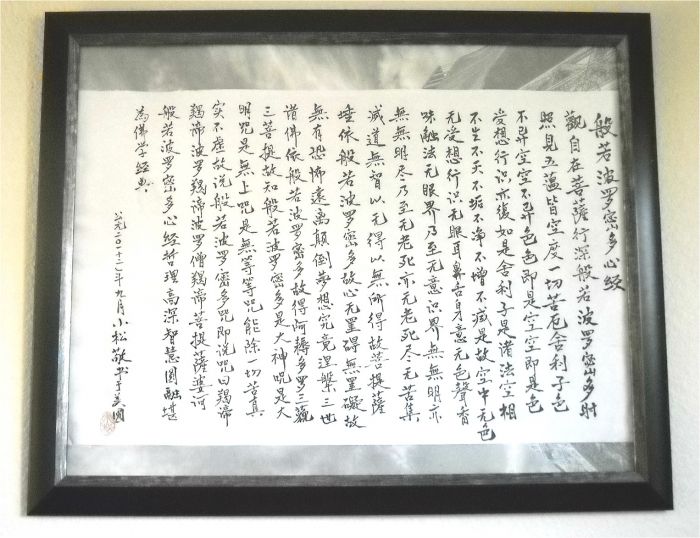 般若波罗密多心经
觀自在菩薩行深般若波罗密多时
照見五蕴皆空度一切苦厄舍利子色
不异空空不异色色即是空空即是色
受想行识亦復如是舍利子是诸法空相
不生不灭不垢不净不增不减是故空中无色
无受想行识无眼耳鼻舌身意无色聲香
味触法无眼界乃至无意识界無無明亦
無無明尽乃至无老死亦无老死尽无苦集
灭道無智以无得以無所得故菩提薩
埵依般若波罗密多故心无罣碍無罣礙故
無有恐怖遠离顛倒夢想究竟涅槃三世
诸佛依般若波罗密多故得阿耨多罗三藐
三菩提故知般若波罗密多是大神咒是大
明咒是無上咒是無等等咒能除一切苦真
实不虚故说般若波罗密多咒即说咒曰羯谛
羯谛波罗羯谛波罗僧羯谛菩提薩婆诃
般若波罗密多心经哲理高深智慧圆融堪
為佛学经典
公元二〇十二年九月小松敬书于美國